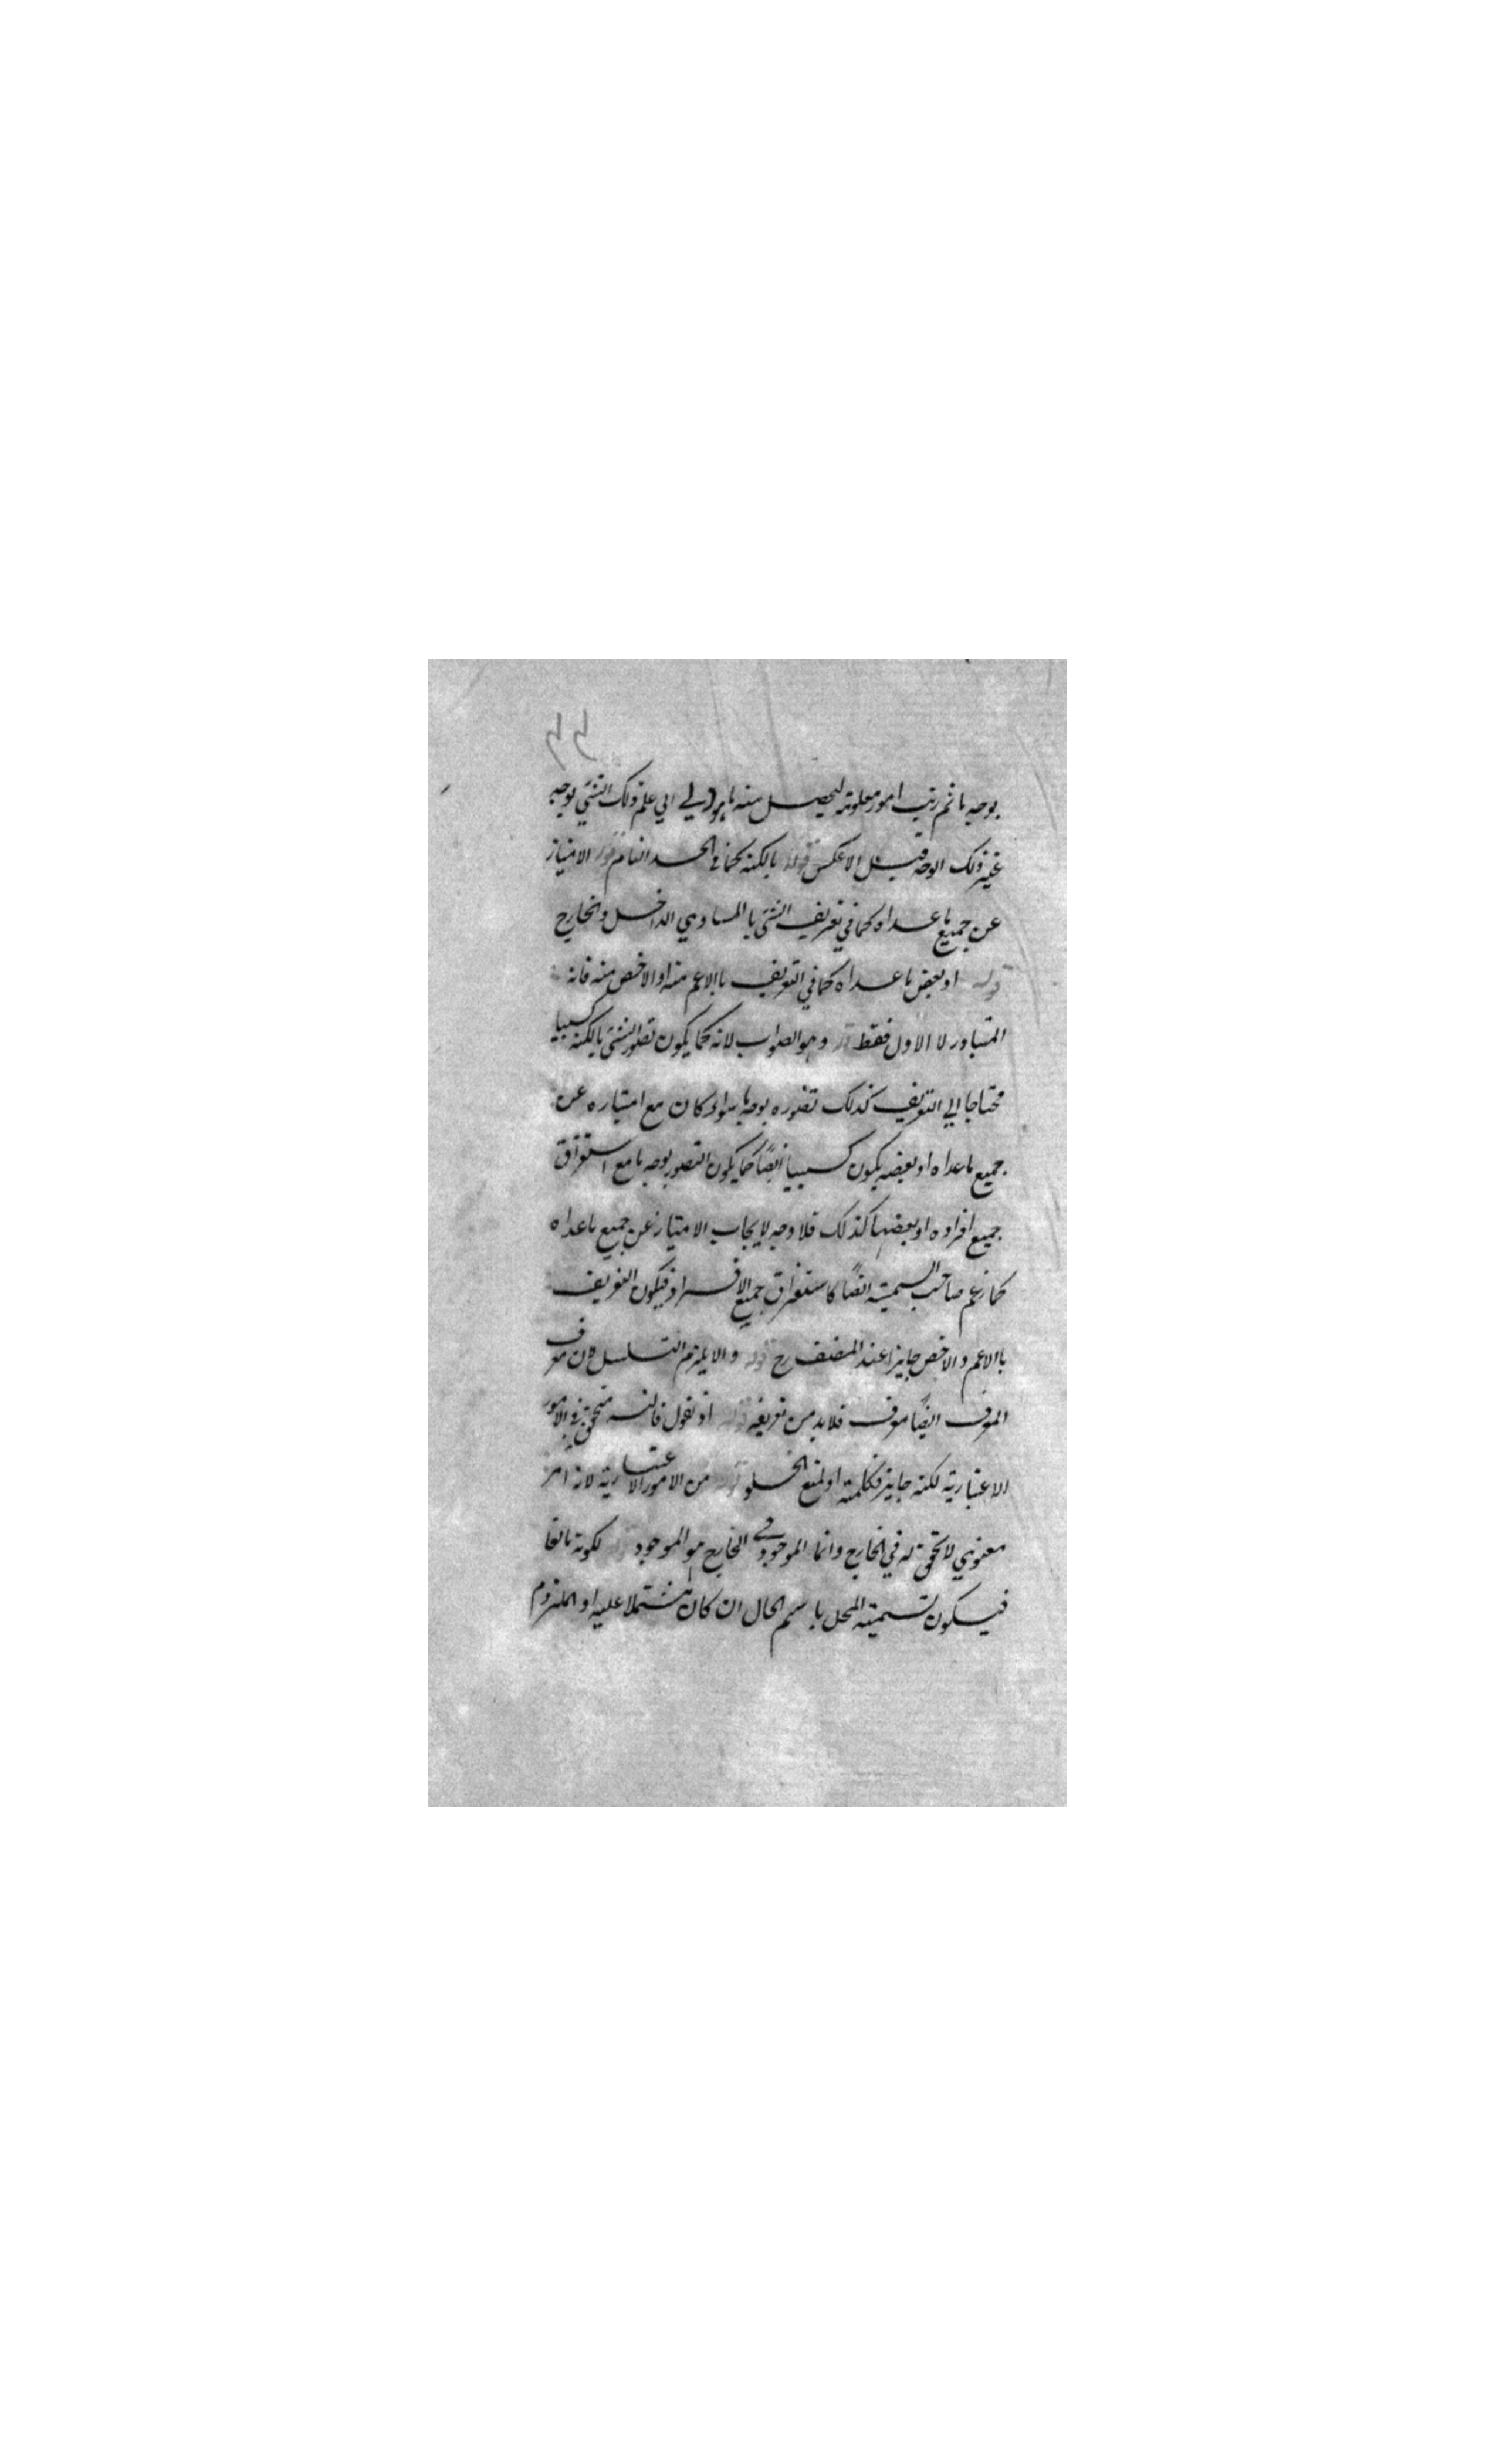 ٤٤
بوجه ما ثم رتب امور معلومة ليحصل منه ما يؤدي الي علم ذلك الشئ بوجه
غير ذلك الوجه قيل الا عكس قوله بالكنه كما في الحد التام قوله الامتياز
عن جميع ما عداه كما في تعريف الشئ باالمساوي الداخل والخارج
قوله او بعض ما عداه كما في التعريف باالاعم منه او الاخص منه فانه
المتبادر لا الاول فقط وهو الصواب لانه كما يكون تصور الشئ بالكنه كسبيا
محتاجا الي التعريف كذلك تصوره بوجه ما سواء كان مع امتيازه عن
جميع ما عداه او بعضه يكون كسبيا ايضًا كما يكون التصور بوجه ما مع استغراق
جميع افراده او بعضها كذلك فلا وجه لايجاب الامتياز عن جميع ما عداه
كما زعم صاحب الشمسية ايضًا كاستغراق جميع الافراد فيكون التعريف
باالاعم والاخص جايزا عند المصنف رح قوله والا يلزم التسلسل لان معرف
المعرف ايضًا معرف فلا بد من تعريفه قوله او نقول فالتسـ متحقق في الامور
الاعتبارية لكنه جايز فكلمة او لمنع الخلو قوله من الامور الاعتبارية لانه امر
معنوي لا تحقق له في الخارج وانما الموجود في الخارج هو الموجود لكونه مانعا
فيكون تسمية المحل باسم الحال ان كان مشتملا عليه او الملزوم